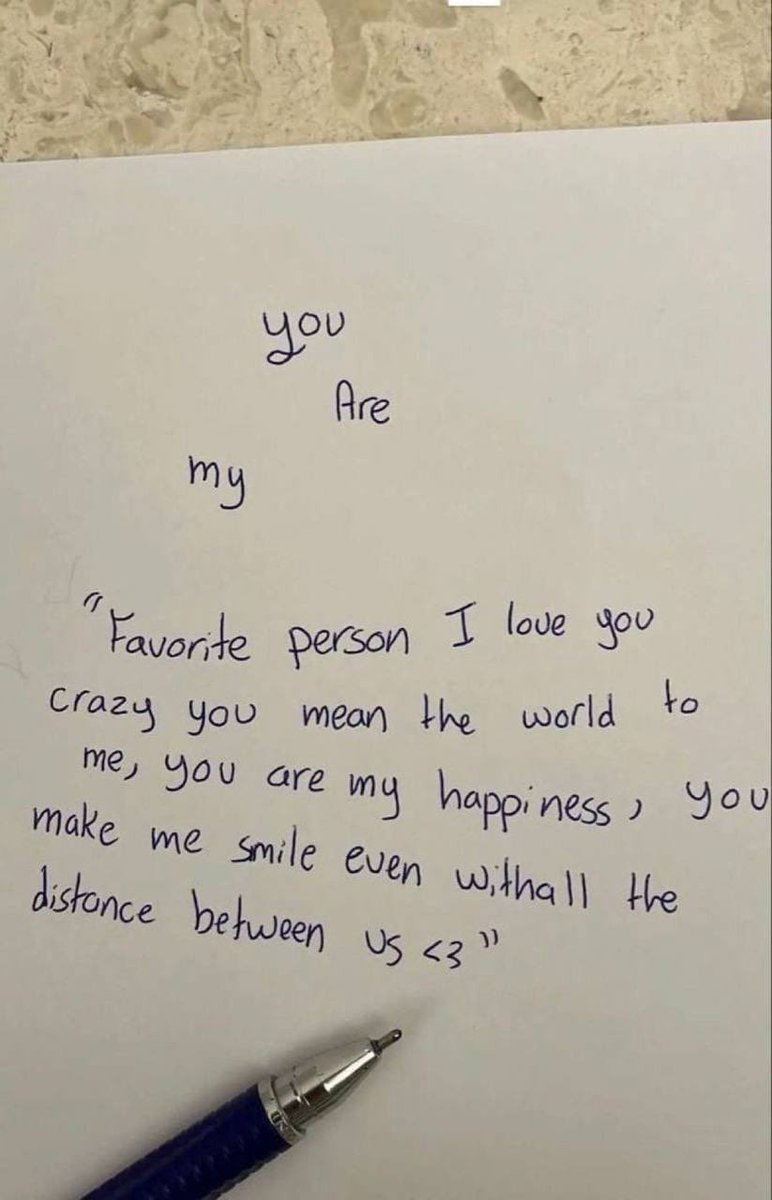 you
Are
my
"Favorite person I love you
crazy you mean the world to
me, you are my happiness, you
make me smile even withall the
distance between us <3"